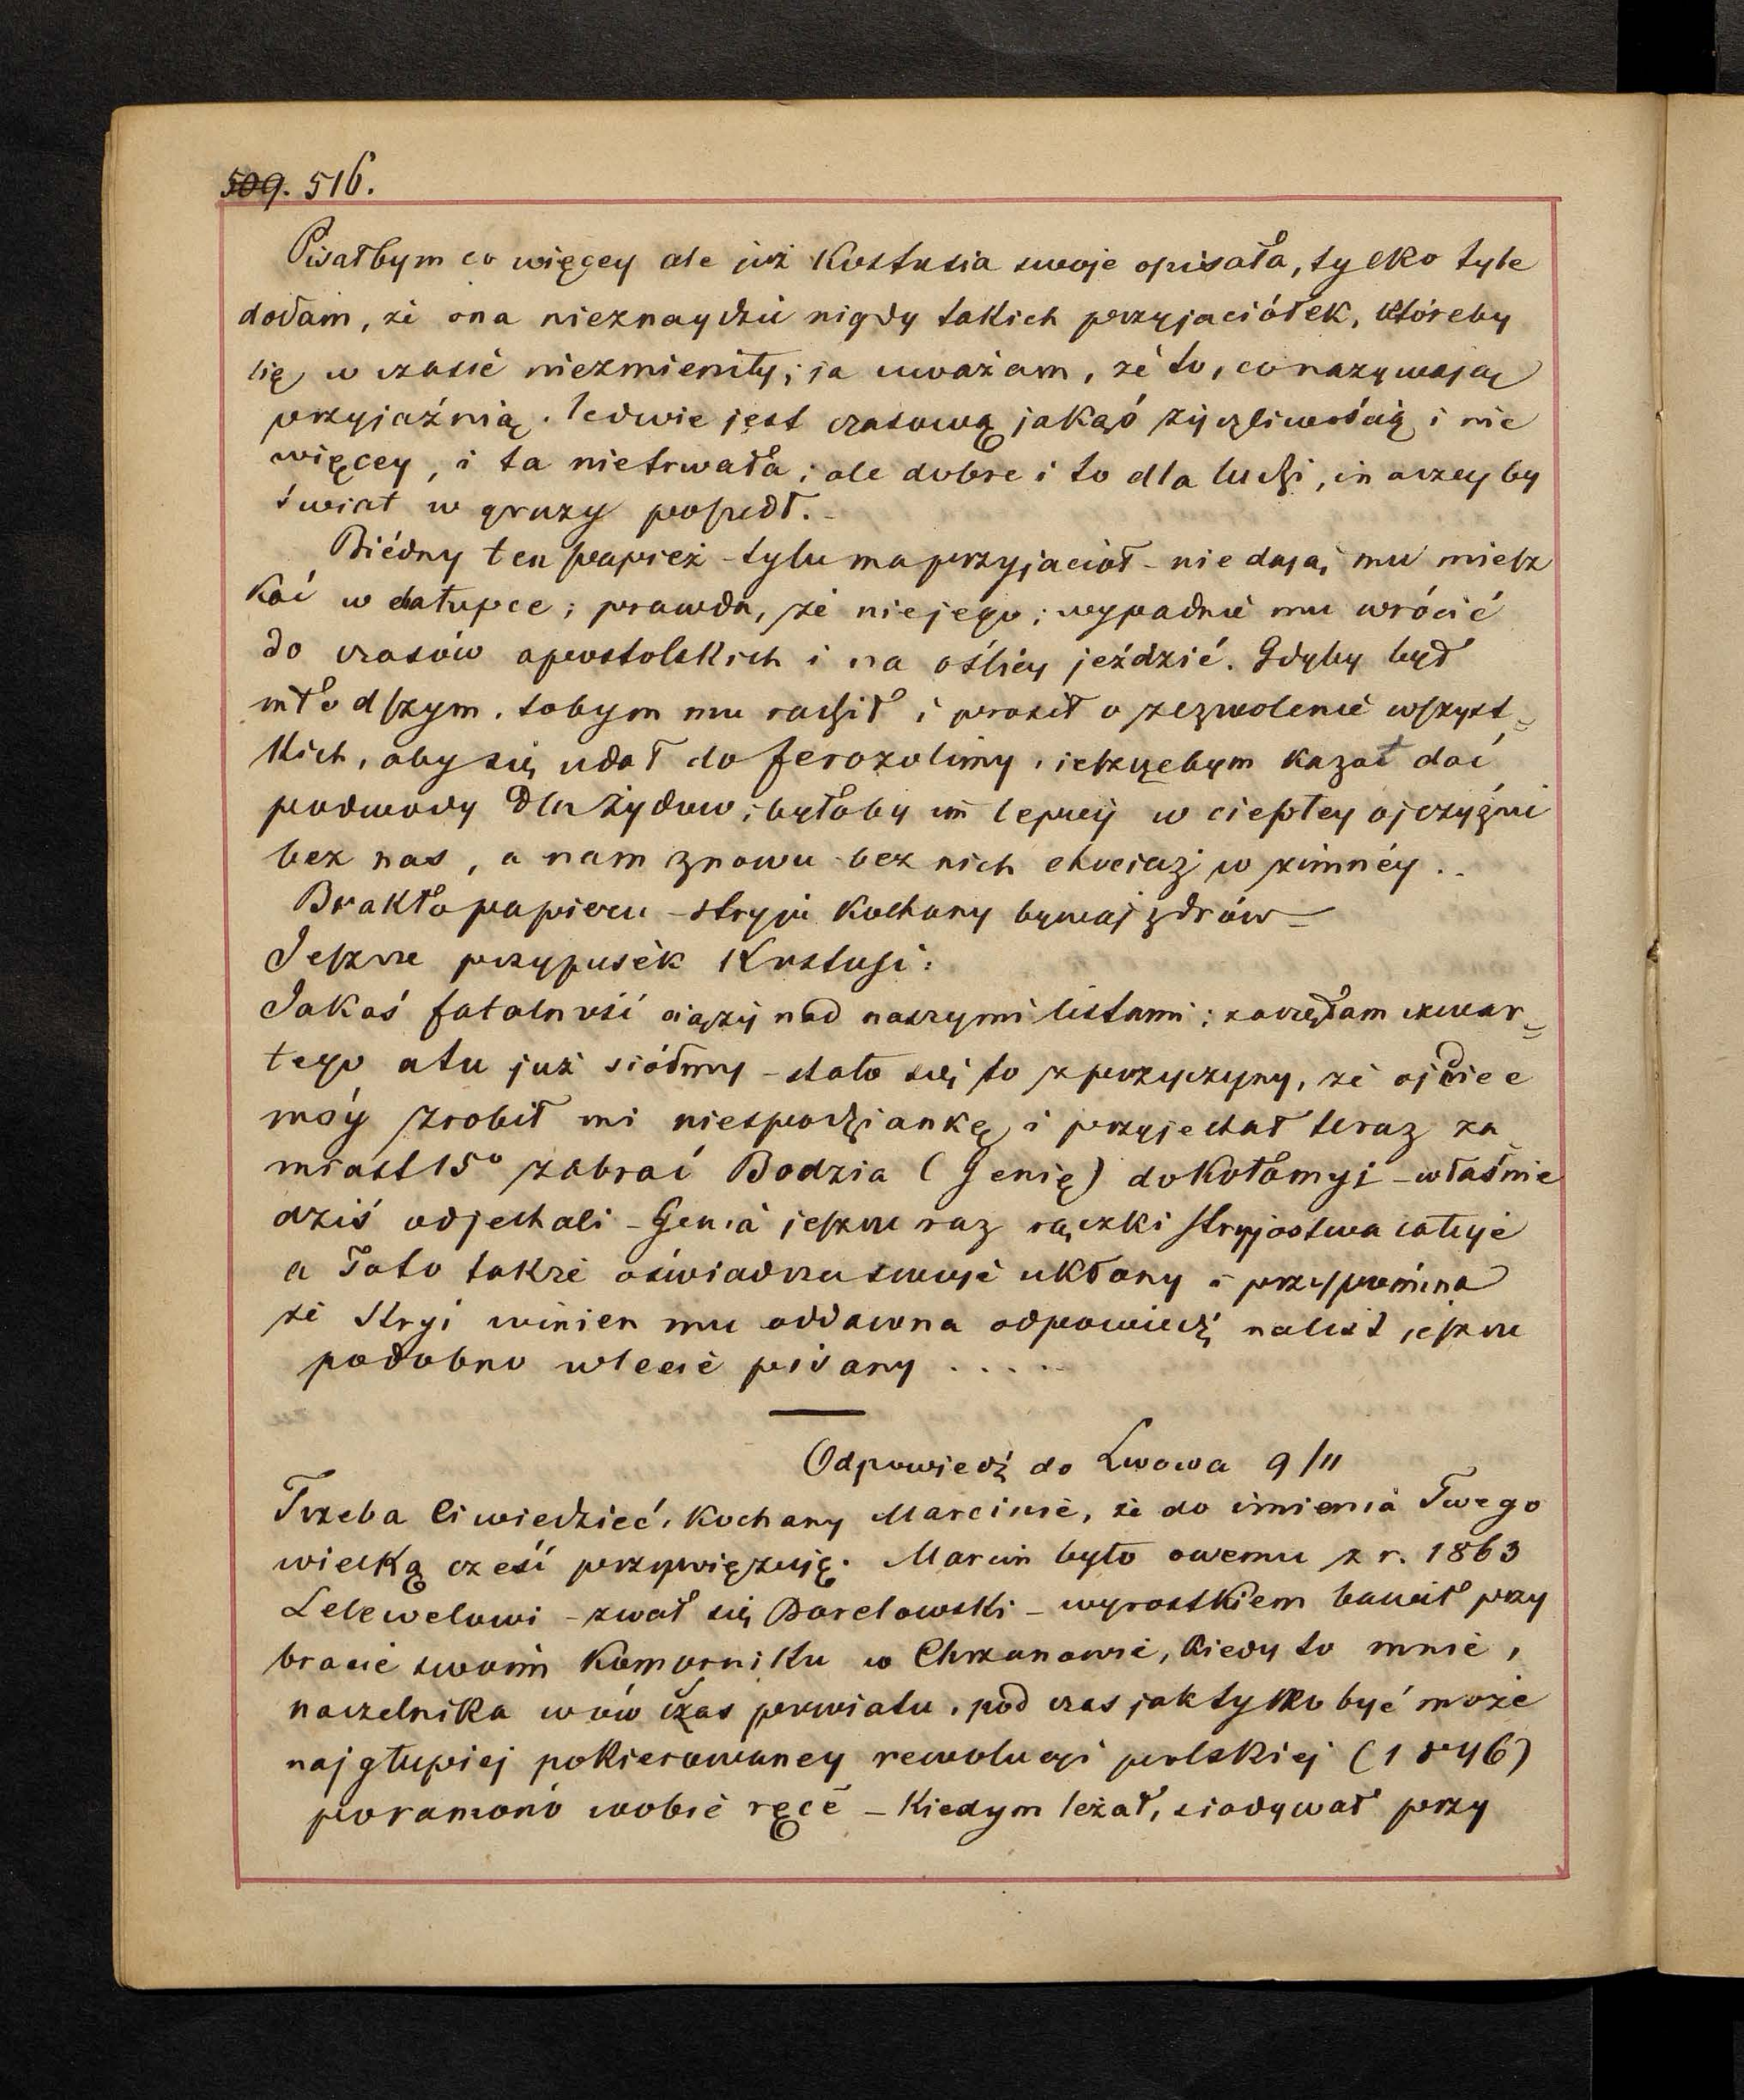 509. 516.
Pisałbym co więcey ale już Kostusia swoje opisała, tylko tyle
dodam, że ona nieznaydzie nigdy takich przyjaciółek, któreby
się w czasie niezmieniły; ja uważam, że to, co nazywają
przyjaźnią, ledwie jest czasową jakąś życzliwością i nic
więcey, i ta nietrwała; ale dobre i to dla ludzi, inaczey by
świat w gruzy poszedł. –
Biédny ten papież – tylu ma przyjaciół – nie dają mu miesz
kać w chałupce; prawda, że niejego; wypadnie mu wrócić
do czasów apostolskich i na oślicy jeździć. Gdyby był
młodszym, tobym mu radził i prosił o zezwolenie wszyst=
kich, aby się udał do Jerozolimy, jeszczebym kazał dać
podwody dla Żydów; byłoby im lepiej w ciepłey ojczyźnie
bez nas, a nam znowu bez nich chociaż w zimnéy ..
Brakło papieru – stryju kochany bywaj zdrów –
Jeszcze przypisek Kostusi:
Jakaś fatalność ciąży nad naszymi listami; zaczęłam czwar=
tego a tu już siódmy – stało się to z przyczyny, że ojciec
móy zrobił mi niespodziankę i przyjechał teraz za
miast 15º zabrać Bodzia (Genię) do Kołomyi – właśnie
dziś odjechali – Genia jeszcze raz rączki stryjostwa całuje
a Tato także oświadcza swoje ukłony i przypomina
że Stryj winien mu oddawna odpowiedź na list jeszcze
podobno w lecie pisany . . . . .
Odpowiedź do Lwowa 9/11
Trzeba Ci wiedzieć, kochany Marcinie, że do imienia Twego
wielką cześć przywięzuję. Marcin było owemu z r. 1863
Lelewelowi – zwał się Borelowski – wyrostkiem bawił przy
bracie swoim Komorniku w Chrzanowie, kiedy to mnie,
naczelnika wówczas powiatu, podczas jak tylko być może
najgłupiej pokierowaney rewolucyi polskiej (1846)
poraniono w obie ręce – Kiedym leżał, siadywał przy